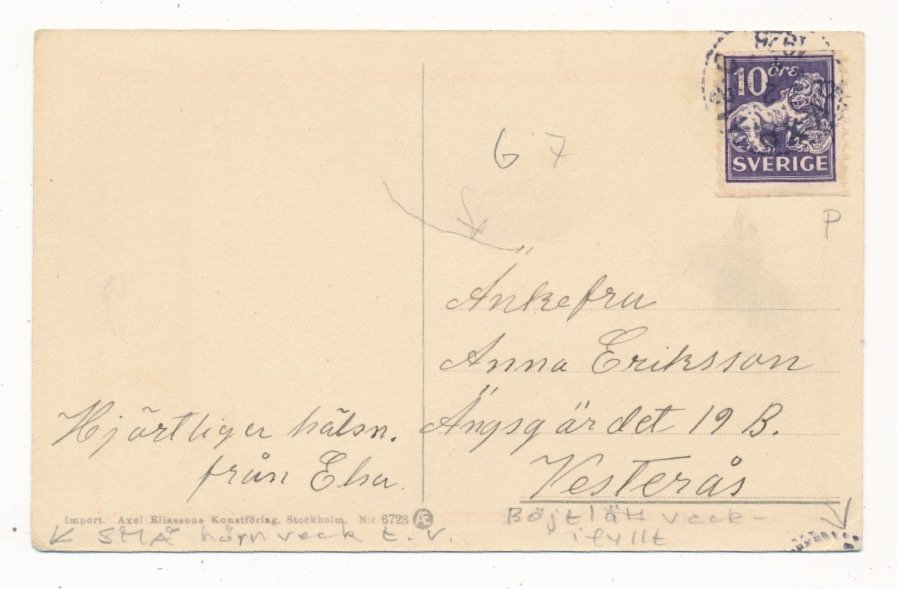 10 öre
SVERIGE
67
P
Änkefru
Anna Eriksson
Ängsgärdet 19 B.
Vesterås
Hjärtliger hälsn.
från Elsa.
Import. Axel Eliassons Konstförlag. Stockholm. N:r 6723 Æ
Böjt lätt veck-
ifyllt
SMÅ hörnveck t.v.